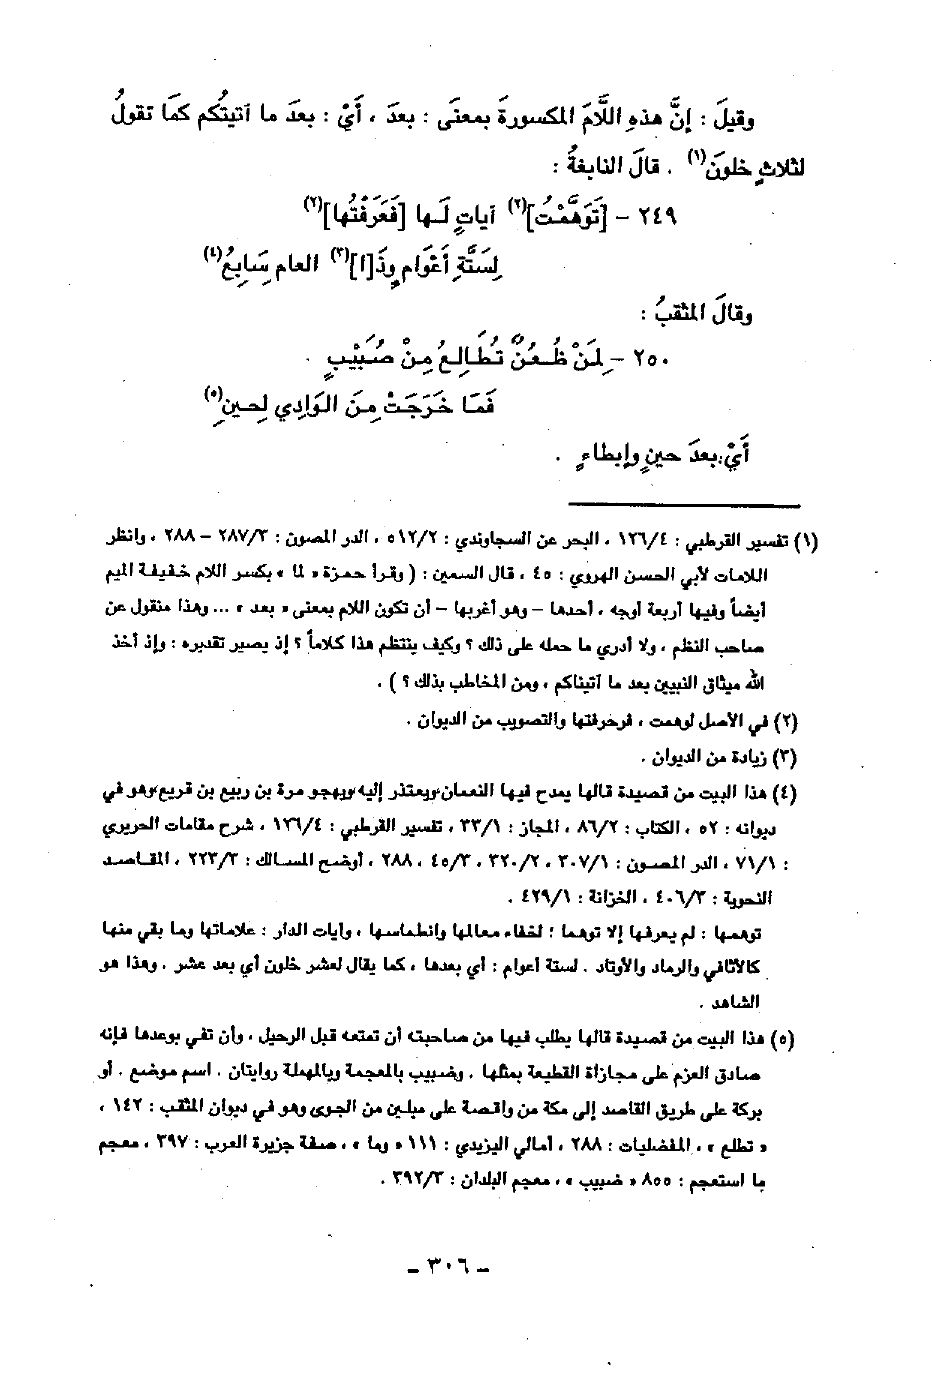 وقيلَ : إنَّ هذهِ اللَّامَ المكسورةَ بمعنَى : بعدَ ، أيْ : بعدَ ما آتيتُكم كمَا تقولُ
لثلاثٍ خلونَ(١) . قالَ النابغةُ :
٢٤٩ – [تَوَهَّمْتُ](٢) آياتٍ لَها [فَعَرَفْتُها](٢)
لِستَّةِ أعْوامٍ وذَ[ا](٣) العامِ سَابِعُ(٤)
وقالَ المثقبُ :
٢٥٠ – لِمَنْ ظُعُنٌ تُطَالِعُ مِنْ ضُبَيْبٍ .
فَمَا خَرَجَتْ مِنَ الوَادِي لِحينِ(٥)
أيْ: بعدَ حينٍ وإبطاءٍ .
(١) تفسير القرطبي : ١٢٦/٤ ، البحر عن السجاوندي : ٥١٢/٢ ، الدر المصون : ٢٨٧/٣ – ٢٨٨ ، وانظر
اللامات لأبي الحسن الهروي : ٤٥ ، قال السمين : ( وقرأ حمزة « لما » بكسر اللام خفيفة الميم
أيضاً وفيها أربعة أوجه ، أحدها – وهو أغربها – أن تكون اللام بمعنى « بعد » ... وهذا منقول عن
صاحب النظم ، ولا أدري ما حمله على ذلك ؟ وكيف ينتظم هذا كلاماً ؟ إذ يصير تقديره : وإذ أخذ
الله ميثاق النبيين بعد ما آتيناكم ، ومن المخاطب بذلك ؟ ) .
(٢) في الأصل لوهمت ، فرحرفتها والتصويب من الديوان .
(٣) زيادة من الديوان .
(٤) هذا البيت من قصيدة قالها يمدح فيها النعمان ويعتذر إليه ويهجو مرة بن ربيع بن قريع وهو في
ديوانه : ٥٢ ، الكتاب : ٨٦/٢ ، المجاز : ٣٣/١ ، تفسير القرطبي : ١٢٦/٤ ، شرح مقامات الحريري
: ٧١/١ ، الدر المصون : ٣٠٧/١ ، ٣٢٠/٢ ، ٤٥/٣ ، ٢٨٨ ، أوضح المسالك : ٢٢٣/٣ ، المقاصد
النحوية : ٤٠٦/٣ ، الخزانة : ٤٢٩/١ .
توهمها : لم يعرفها إلا توهما ؛ لخفاء معالمها وانطماسها ، وآيات الدار : علاماتها وما بقي منها
كالأثافي والرماد والأوتاد . لستة أعوام : أي بعدها ، كما يقال لعشر خلون أي بعد عشر . وهذا هو
الشاهد .
(٥) هذا البيت من قصيدة قالها يطلب فيها من صاحبته أن تمتعه قبل الرحيل ، وأن تفي بوعدها فإنه
صادق العزم على مجازاة القطيعة بمثلها . وضبيب بالمعجمة وبالمهملة روايتان . اسم موضع . أو
بركة على طريق القاصد إلى مكة من واقصة على ميلين من الجوى وهو في ديوان المثقب : ١٤٢ ،
« تطلع » ، المفضليات : ٢٨٨ ، أمالي اليزيدي : ١١١ « وما » ، صفة جزيرة العرب : ٣٩٧ ، معجم
ما استعجم : ٨٥٥ « ضبيب » ، معجم البلدان : ٣٩٢/٣ .
– ٣٠٦ –